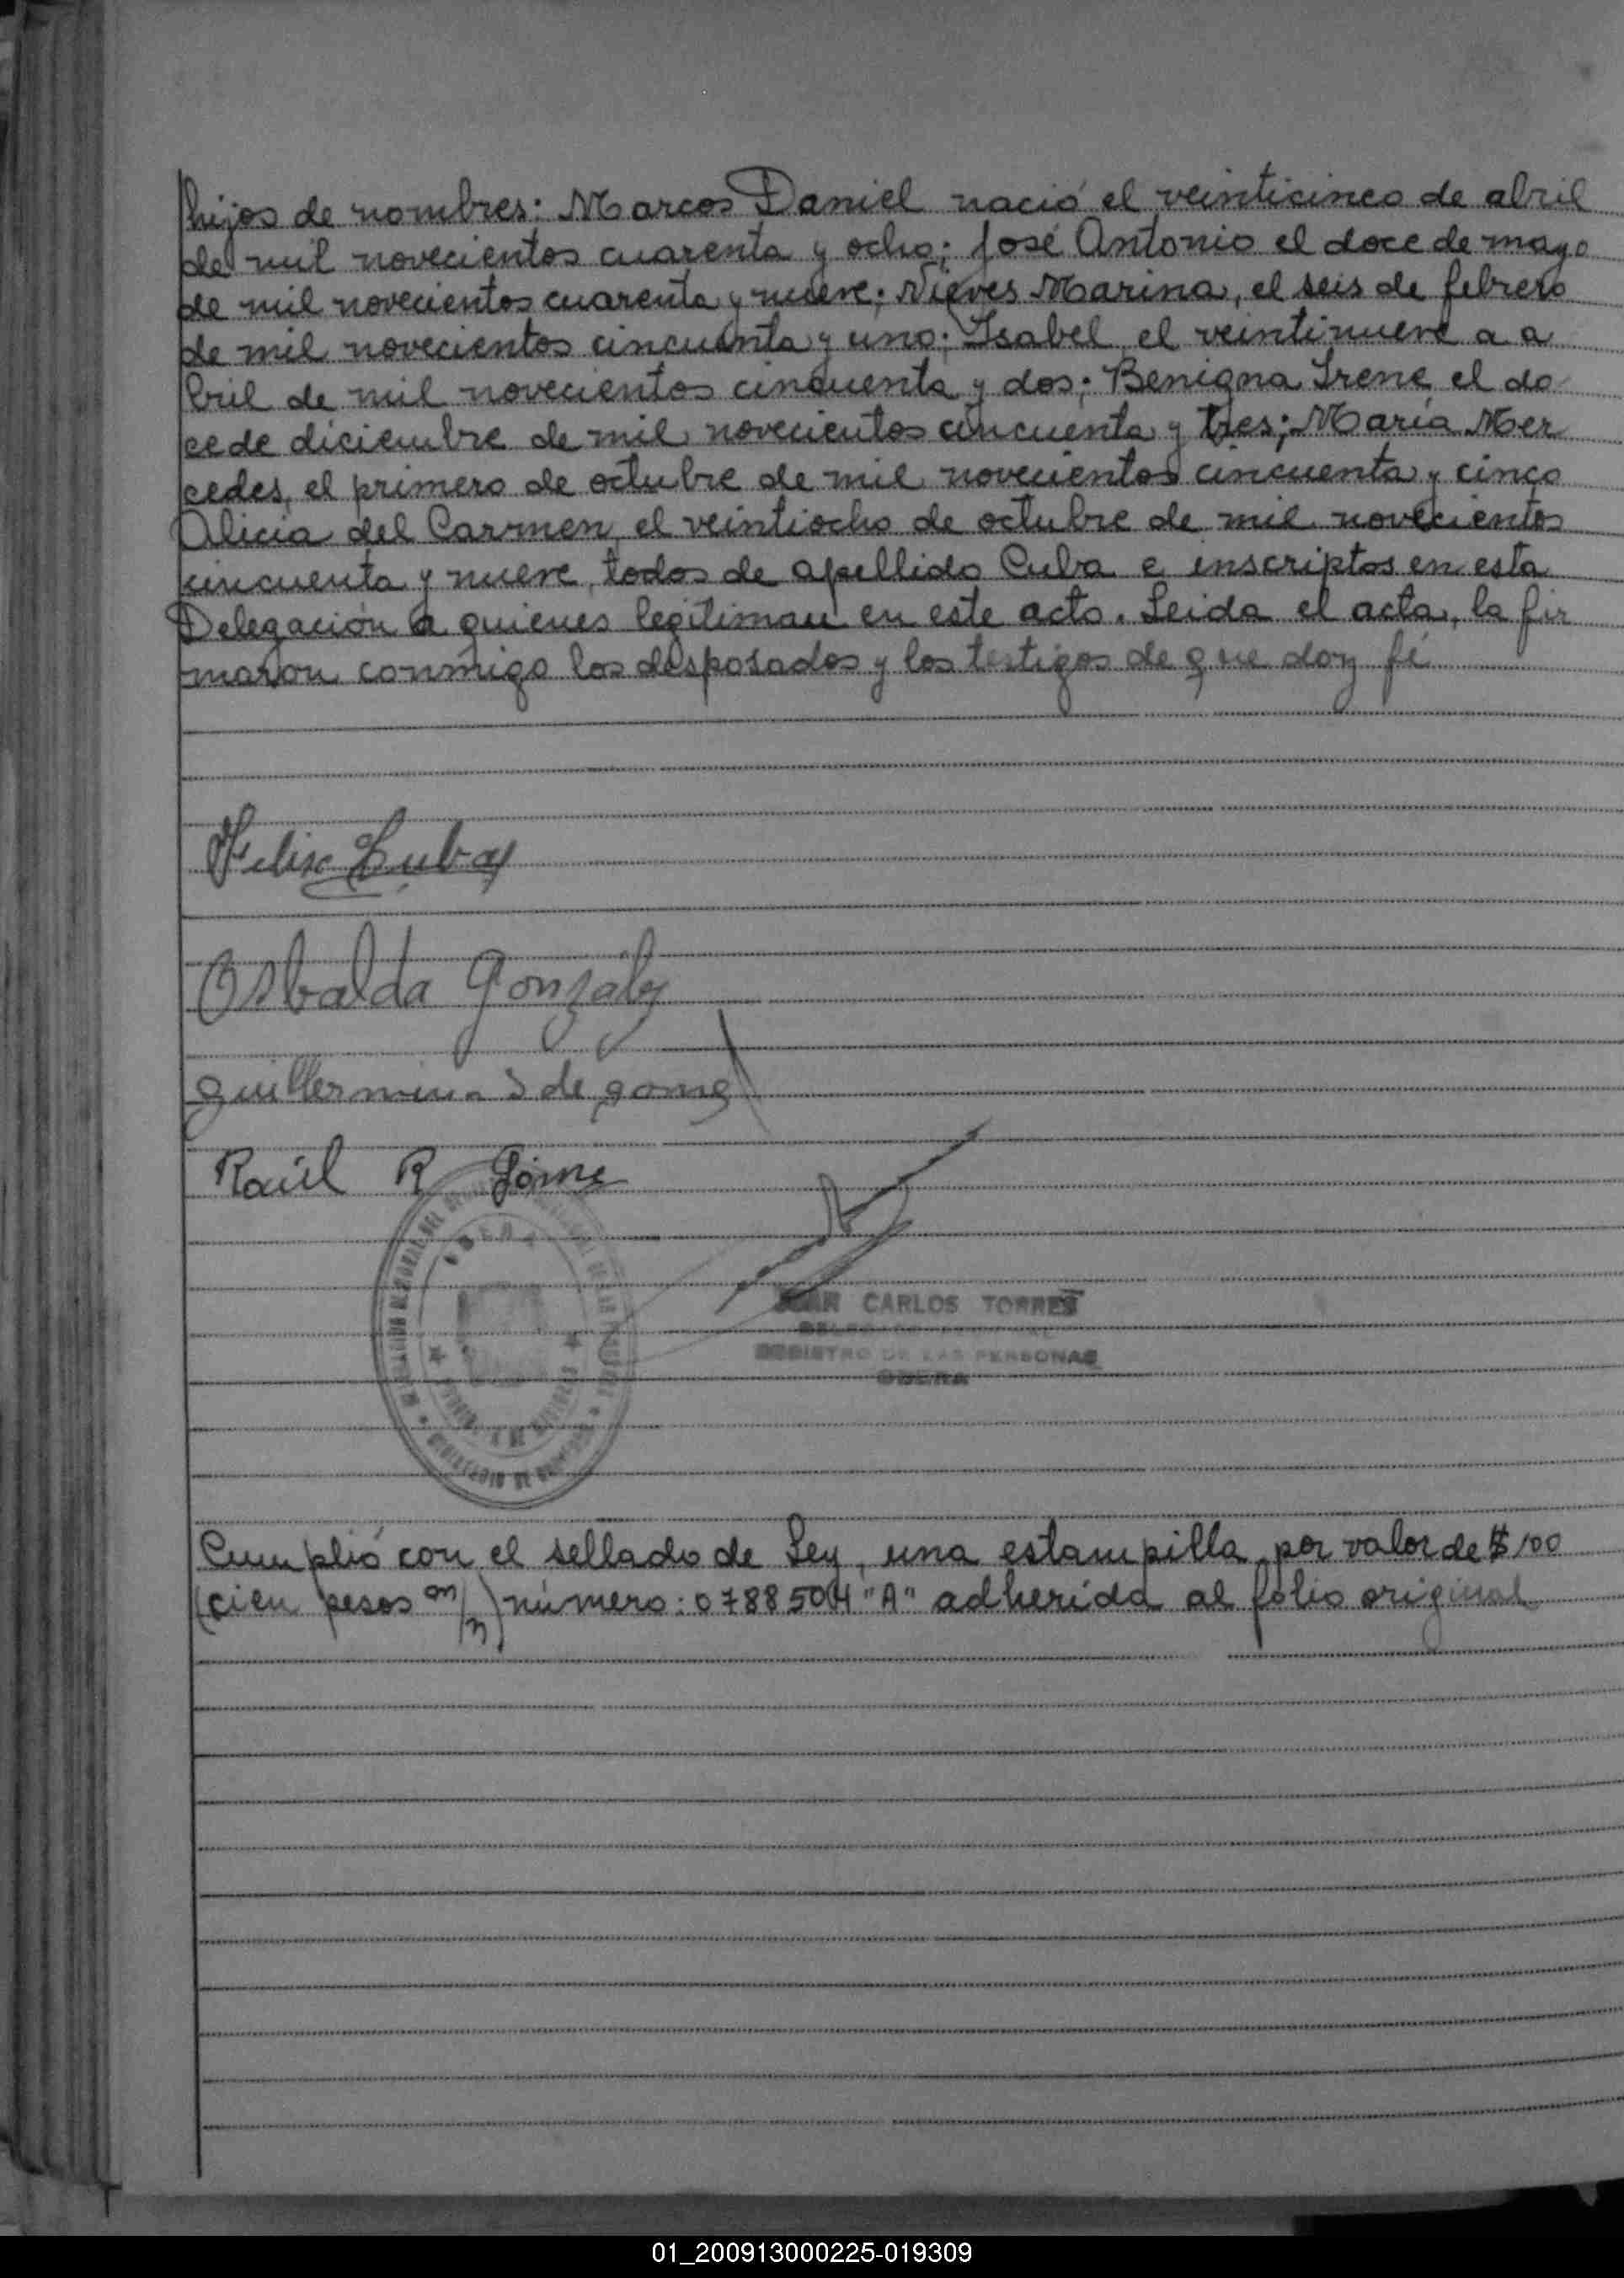 hijos de nombres: Marcos Daniel nació el veinticinco de abril
de mil novecientos cuarenta y ocho; José Antonio el doce de mayo
de mil novecientos cuarenta y nueve; Nieves Marina, el seis de febrero
de mil novecientos cincuenta y uno; Isabel el veintinueve a a
bril de mil novecientos cincuenta y dos; Benigna Irene el do
ce de diciembre de mil novecientos cincuenta y tres; María Mer
cedes, el primero de octubre de mil novecientos cincuenta y cinco
Alicia del Carmen, el veintiocho de octubre de mil novecientos
cincuenta y nueve, todos de apellido Cuba e inscriptos en esta
Delegación a quienes legitiman en este acto. Leida el acta, la fir
maron conmigo los desposados y los testigos de que doy fé
Felix Cuba
Osbalda Gonzalez
guillermina S de gomez
Raúl R Góme
JUAN CARLOS TORRES
REGISTRO DE LAS PERSONAS
OBERA
Cumplió con el sellado de Ley, una estampilla por valor de $ 100
(cien pesos m/n) número: 0788504 "A" adherida al folio original
01_200913000225-019309